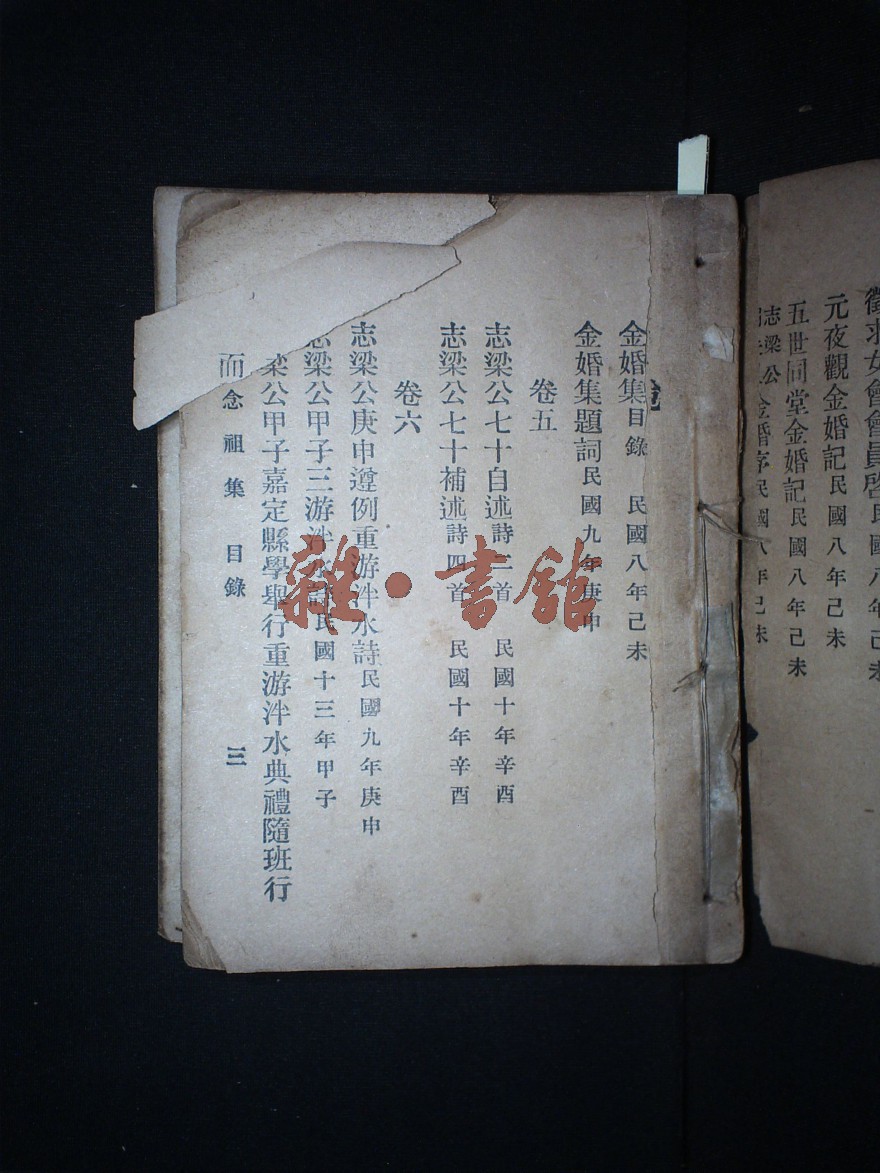 徵求女會會員啓民國八年己未
元夜觀金婚記民國八年己未
五世同堂金婚記民國八年己未
志梁公金婚序民國八年己未
金婚集目錄 民國八年己未
金婚集題詞民國九年庚申
卷五
志梁公七十自述詩二首 民國十年辛酉
志梁公七十補述詩四首 民國十年辛酉
卷六
志梁公庚申遵例重游泮水詩民國九年庚申
志梁公甲子三游泮水詩民國十三年甲子
梁公甲子嘉定縣學舉行重游泮水典禮隨班行
念祖集 目錄 三
雜·書館